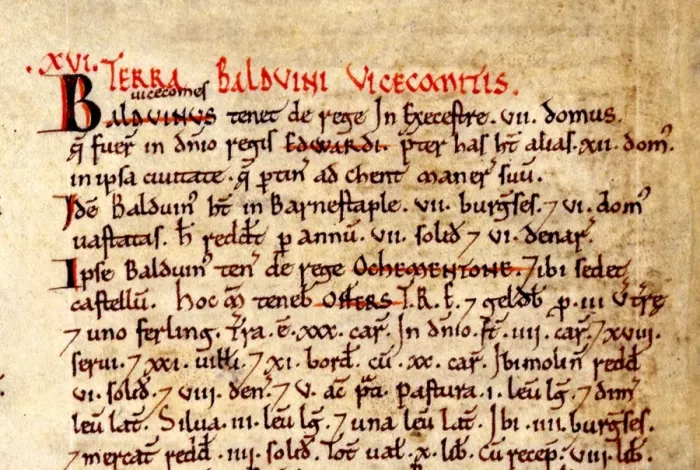 .XVI. TERRA BALDVINI VICECOMITIS.
vicecomes
BALDVINVS tenet de rege In Execestre. vii. domus.
q̃ fuer̃ in dñio regis EDWARDI. p̃ter has ht̃ alias. xii. dom̃.
in ipsa ciuitate. q̃ ptiñ ad Chent maner̃ suũ.
Idẽ Balduin' ht̃ in Barnestaple. vii. burgses. ⁊ vi. dom'
uastatas. h̃ reddt̃ p annũ. vii. solid ⁊ vi. denar̃.
Ipse Balduin' teñ de rege OCHEMENTONE. ⁊ ibi sedet
castellũ. Hoc m̃ teneb̃ OSFERS T.R.E. ⁊ geldb̃ p. iii v̾tr̃e
⁊ uno ferling. Tr̃a. ẽ. xxx. car̃. In dñio. st̃. iiii. car̃. ⁊ xviii.
serui. ⁊ xxi. uilłi. ⁊ xi. bord̃. cũ. xx. car̃. Ibi molin̄ redd̃
vi. solid. ⁊ viii. deñ. ⁊ v. ac̃ p̃ti. Pastura. i. leũ lg̃. ⁊ dim̃
leũ lat̃. Silua. iii. leũ lg̃. ⁊ una leũ lat̃. Ibi. iiii. burgses.
⁊ mercat̃ redd̃. iiii. solid. Tot̃ ual̃. x. lib̃. Cũ recep̃. viii. lib̃.